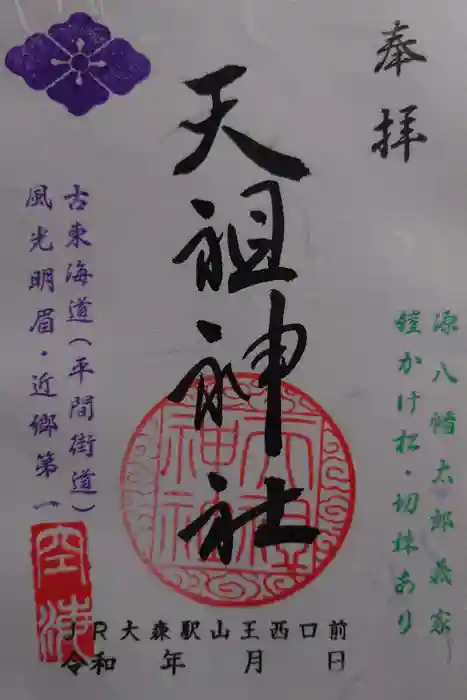 奉拝
天祖神社
源八幡太郎義家
鎧かけ松・切株あり
古東海道(平間街道)
風光明眉・近郷第一
JR大森駅山王西口前
令和　年　月　日